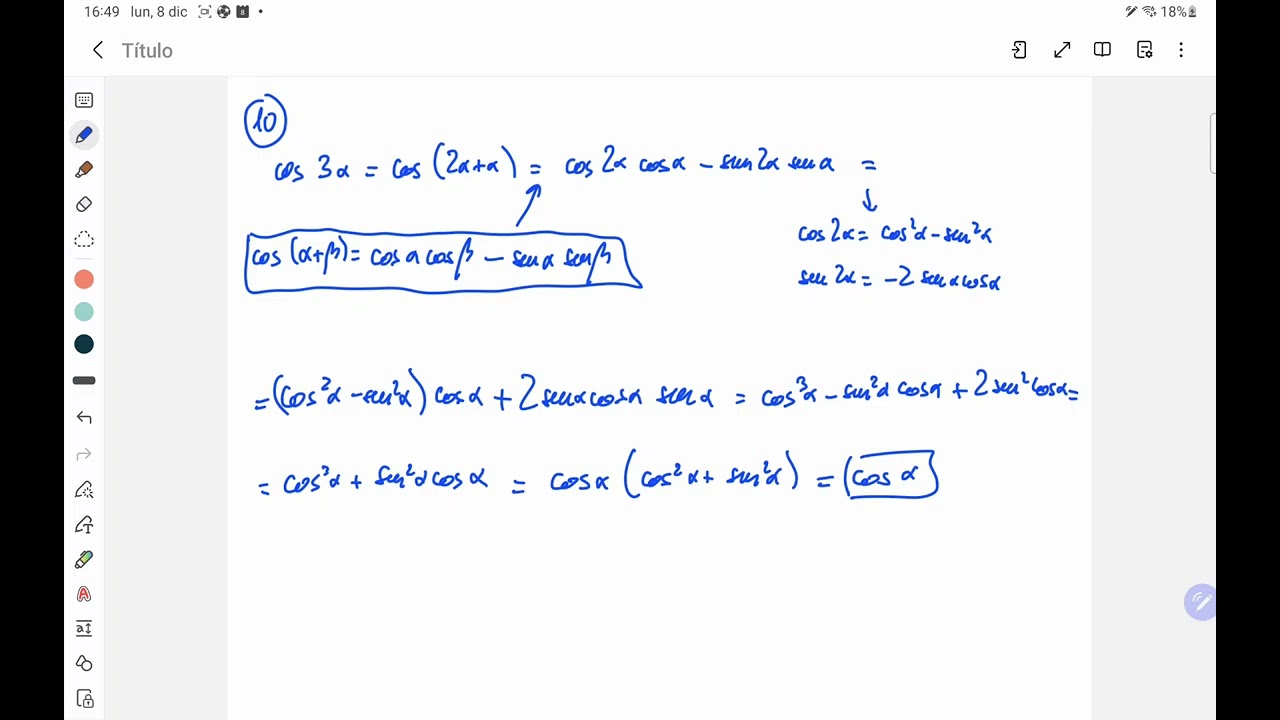 16:49 lun, 8 dic 8 18%
Título
10
cos 3α = cos (2α+α) = cos 2α cosα - sen 2α senα =
cos 2α = cos²α - sen²α
cos (α+β) = cosα cosβ - senα senβ
sen 2α = -2 senαcosα
= (cos²α - sen²α) cosα + 2 senαcosα senα = cos³α - sen²α cosα + 2 sen² cosα =
= cos³α + sen²α cosα = cosα (cos²α + sen²α) = cos α